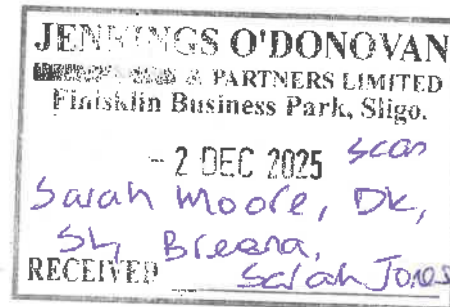 JENNINGS O'DONOVAN
& PARTNERS LIMITED
Finisklin Business Park, Sligo.
- 2 DEC 2025 scan
Sarah Moore, DK,
SH, Breena,
RECEIVED Sarah Jones